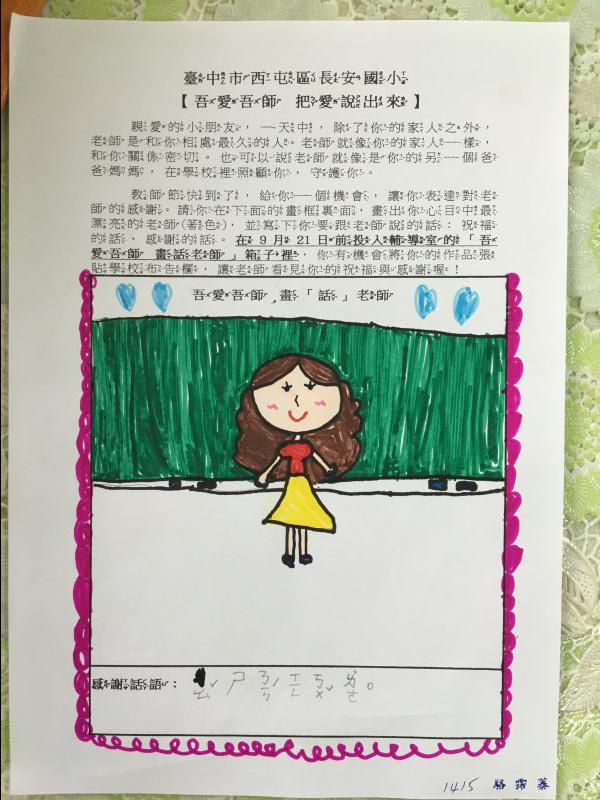 臺中市西屯區長安國小
【吾愛吾師 把愛說出來】
親愛的小朋友，一天中，除了你的家人之外，
老師是和你相處最久的人。老師就像你的家人一樣，
和你關係密切。也可以說老師就像是你的另一個爸
爸媽媽，在學校裡照顧你，守護你。
教師節快到了，給你一個機會，讓你表達對老
師的感謝。請你在下面的畫框裏面，畫出你心目中最
漂亮的老師(著色)，並寫下你要跟老師說的話：祝福
的話、感謝的話。在9月21日前投入輔導室的「吾
愛吾師 畫話老師」箱子裡，你有機會將你的作品張
貼學校布告欄，讓老師看見你的祝福與感謝喔！
吾愛吾師 畫「話」老師
感謝話語：
1415